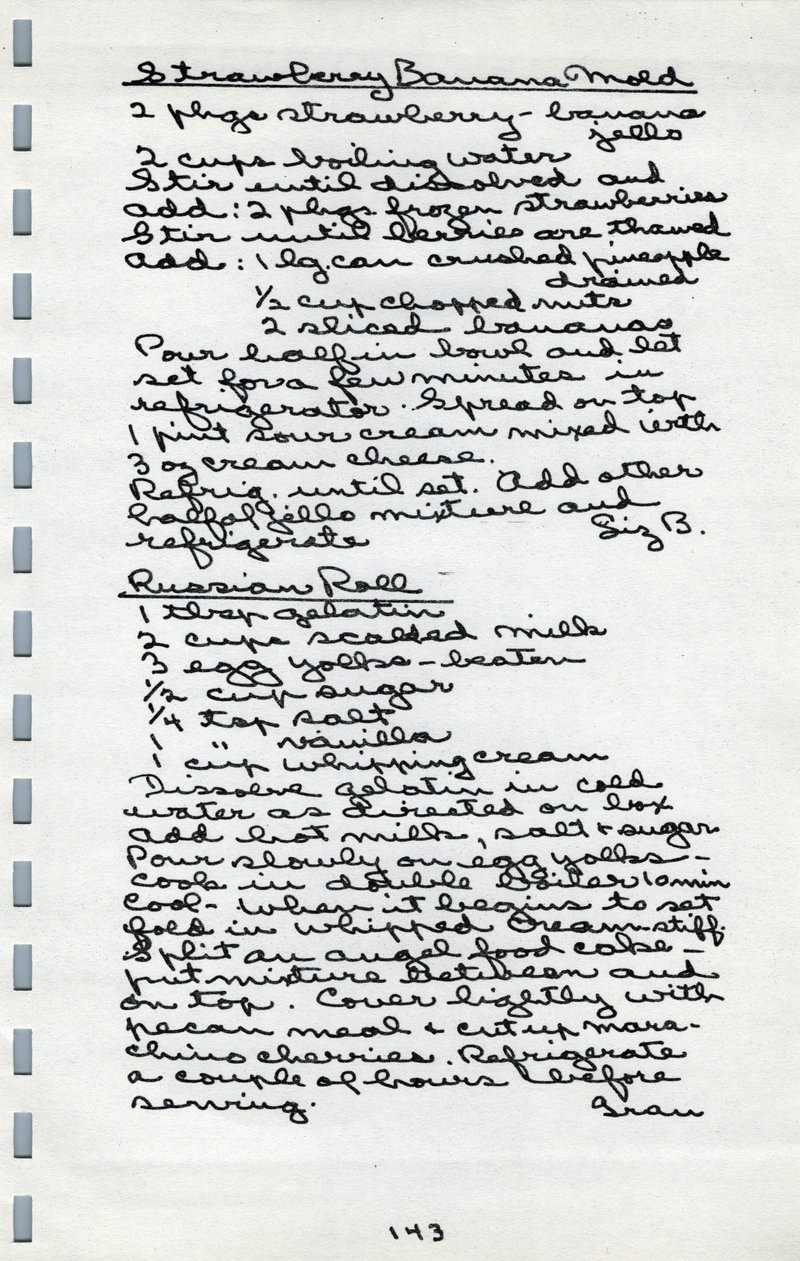 Strawberry Banana Mold
2 pkgs strawberry-banana
jello
2 cups boiling water
Stir until dissolved and
add: 2 pkgs. frozen strawberries
Stir until berries are thawed
add: 1 lg. can crushed pineapple
drained
1/2 cup chopped nuts
2 sliced bananas
Pour half in bowl and let
set for a few minutes in
refrigerator. Spread on top
1 pint sour cream mixed with
3 oz cream cheese.
Refrig. until set. Add other
half of jello mixture and
refrigerate Siz B.
Russian Roll
1 tbsp gelatin
2 cups scalded milk
3 egg yolks - beaten
1/2 cup sugar
1/4 tsp salt
1 " vanilla
1 cup whipping cream
Dissolve gelatin in cold
water as directed on box
add hot milk, salt + sugar
Pour slowly on egg yolks -
cook in double boiler 10 min
Cool - when it begins to set
fold in whipped cream-stiff.
Split an angel food cake -
put mixture between and
on top. Cover lightly with
pecan meal + cut up mara-
chino cherries. Refrigerate
a couple of hours before
serving. Gran
143